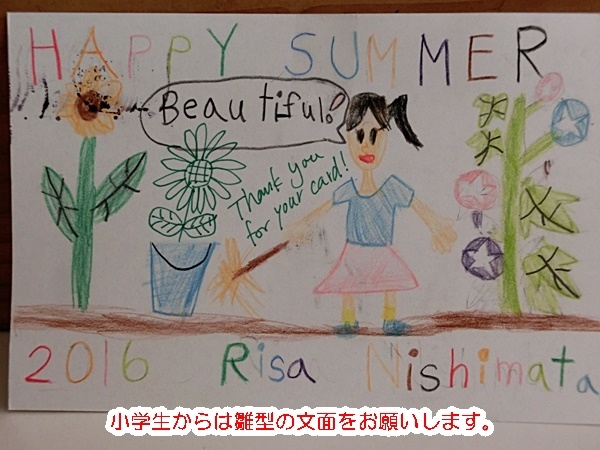 HAPPY SUMMER
Beautiful!
Thank you
for your card!
2016 Risa Nishimata
小学生からは雛型の文面をお願いします。